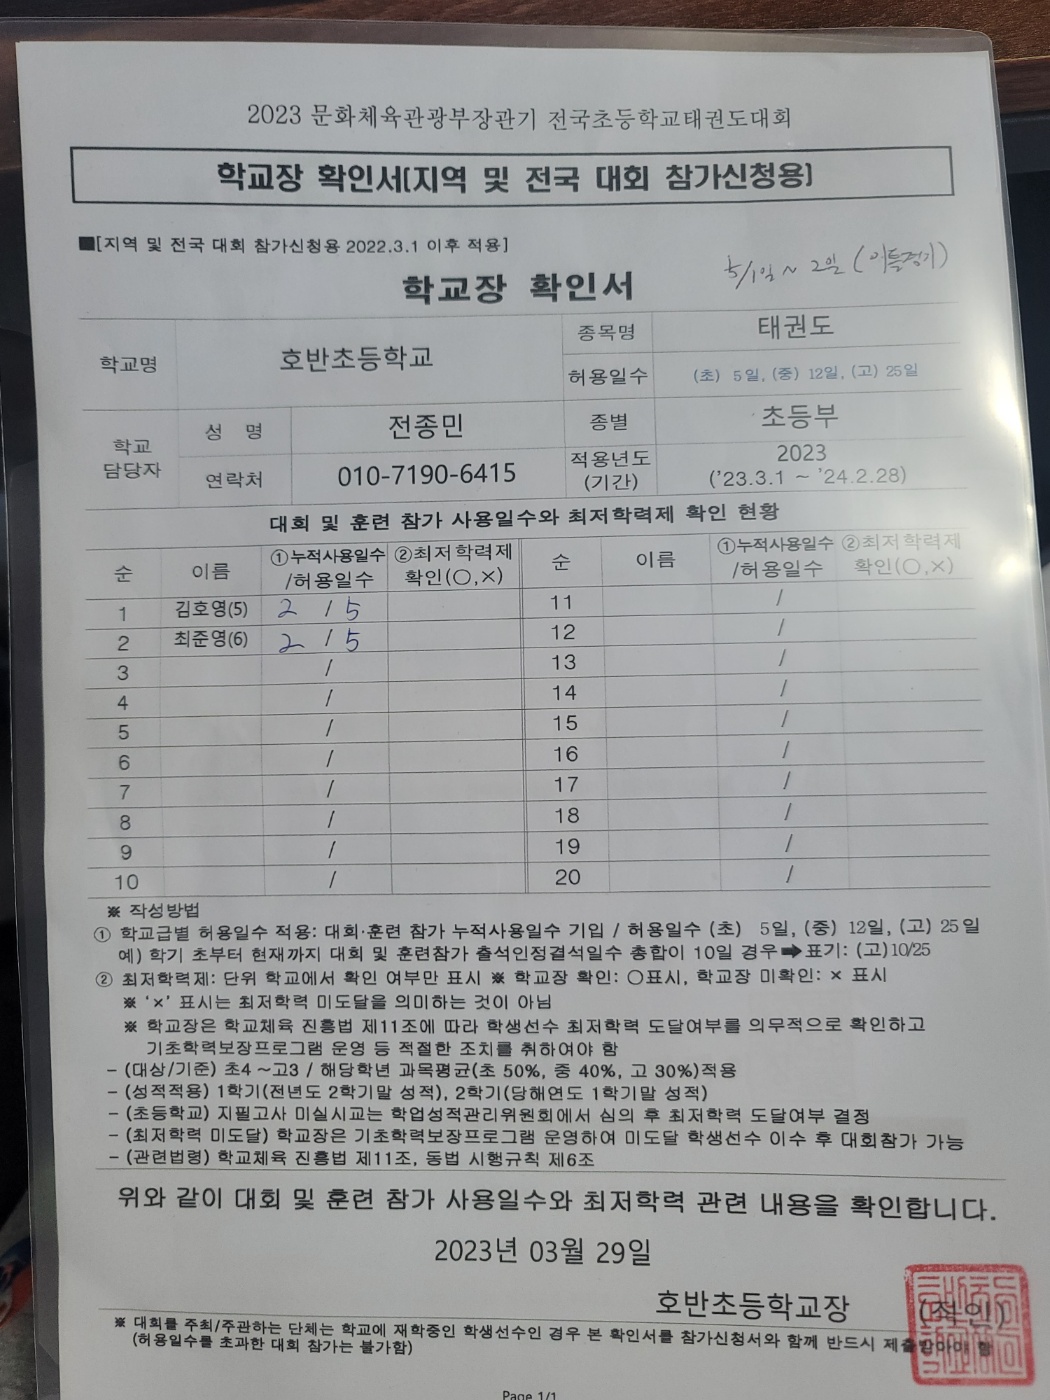 2023 문화체육관광부장관기 전국초등학교태권도대회
학교장 확인서(지역 및 전국 대회 참가신청용)
■[지역 및 전국 대회 참가신청용 2022.3.1 이후 적용]
5/1일 ~ 2일 (이틀경기)
학교장 확인서
학교명 호반초등학교 종목명 태권도
허용일수 (초) 5일, (중) 12일, (고) 25일
학교 담당자 성 명 전종민 종별 초등부
연락처 010-7190-6415 적용년도 (기간) 2023 ('23.3.1 ~ '24.2.28)
대회 및 훈련 참가 사용일수와 최저학력제 확인 현황
순 이름 ①누적사용일수 /허용일수 ②최저학력제 확인(○,×) 순 이름 ①누적사용일수 /허용일수 ②최저학력제 확인(○,×)
1 김호영(5) 2 / 5 11 /
2 최준영(6) 2 / 5 12 /
3 / 13 /
4 / 14 /
5 / 15 /
6 / 16 /
7 / 17 /
8 / 18 /
9 / 19 /
10 / 20 /
※ 작성방법
① 학교급별 허용일수 적용: 대회·훈련 참가 누적사용일수 기입 / 허용일수 (초) 5일, (중) 12일, (고) 25일
예) 학기 초부터 현재까지 대회 및 훈련참가 출석인정결석일수 총합이 10일 경우➡표기: (고)10/25
② 최저학력제: 단위 학교에서 확인 여부만 표시 ※ 학교장 확인: ○표시, 학교장 미확인: × 표시
※ '×' 표시는 최저학력 미도달을 의미하는 것이 아님
※ 학교장은 학교체육 진흥법 제11조에 따라 학생선수 최저학력 도달여부를 의무적으로 확인하고
기초학력보장프로그램 운영 등 적절한 조치를 취하여야 함
- (대상/기준) 초4 ~고3 / 해당학년 과목평균(초 50%, 중 40%, 고 30%)적용
- (성적적용) 1학기(전년도 2학기말 성적), 2학기(당해연도 1학기말 성적)
- (초등학교) 지필고사 미실시교는 학업성적관리위원회에서 심의 후 최저학력 도달여부 결정
- (최저학력 미도달) 학교장은 기초학력보장프로그램 운영하여 미도달 학생선수 이수 후 대회참가 가능
- (관련법령) 학교체육 진흥법 제11조, 동법 시행규칙 제6조
위와 같이 대회 및 훈련 참가 사용일수와 최저학력 관련 내용을 확인합니다.
2023년 03월 29일
호반초등학교장 (직인)
※ 대회를 주최/주관하는 단체는 학교에 재학중인 학생선수인 경우 본 확인서를 참가신청서와 함께 반드시 제출받아야 함
(허용일수를 초과한 대회 참가는 불가함)
Page 1/1